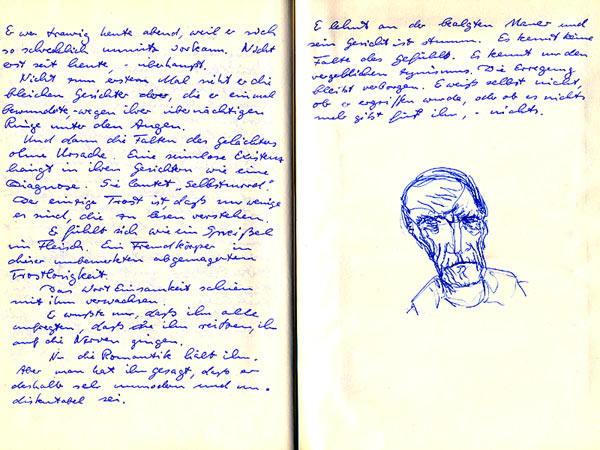 E war traurig heute abend, weil er sich
so schrecklich unnütz vorkam. Nicht
erst seit heute, - überhaupt.
Nicht zum ersten Mal sieht er die
bleichen Gesichter derer, die er einmal
bewunderte, wegen ihrer übernächtigen
Ringe unter den Augen.
Und dann die Falten des Gelächters
ohne Ursache. Eine sinnlose Existenz
hängt in ihren Gesichtern wie eine
Diagnose. Sie lautet „Selbstmord".
Der einzige Trost ist, daß nur wenige
es sind, die zu lesen verstehen.
E fühlt sich wie ein Spreißel
im Fleisch. Ein Fremdkörper in
dieser unbemerkten abgemagerten
Trostlosigkeit.
Das Wort Einsamkeit schien
mit ihm verwachsen.
E wußte nur, daß ihn alle
aufregten, daß sie ihn reizten, ihm
auf die Nerven gingen.
Nur die Romantik hält ihn.
Aber man hat ihm gesagt, daß er
deshalb sehr unmodern und un-
diskutabel sei.
E lehnt an der Mauer und
sein Gesicht ist stumm. Es kennt keine
Falte des Gefühls. Es kennt nur den
vergeblichen Zynismus. Die Erregung
bleibt verborgen. E weiß selbst nicht,
ob er ergriffen wurde, oder ob es nichts
mehr gibt für ihn, - nichts.